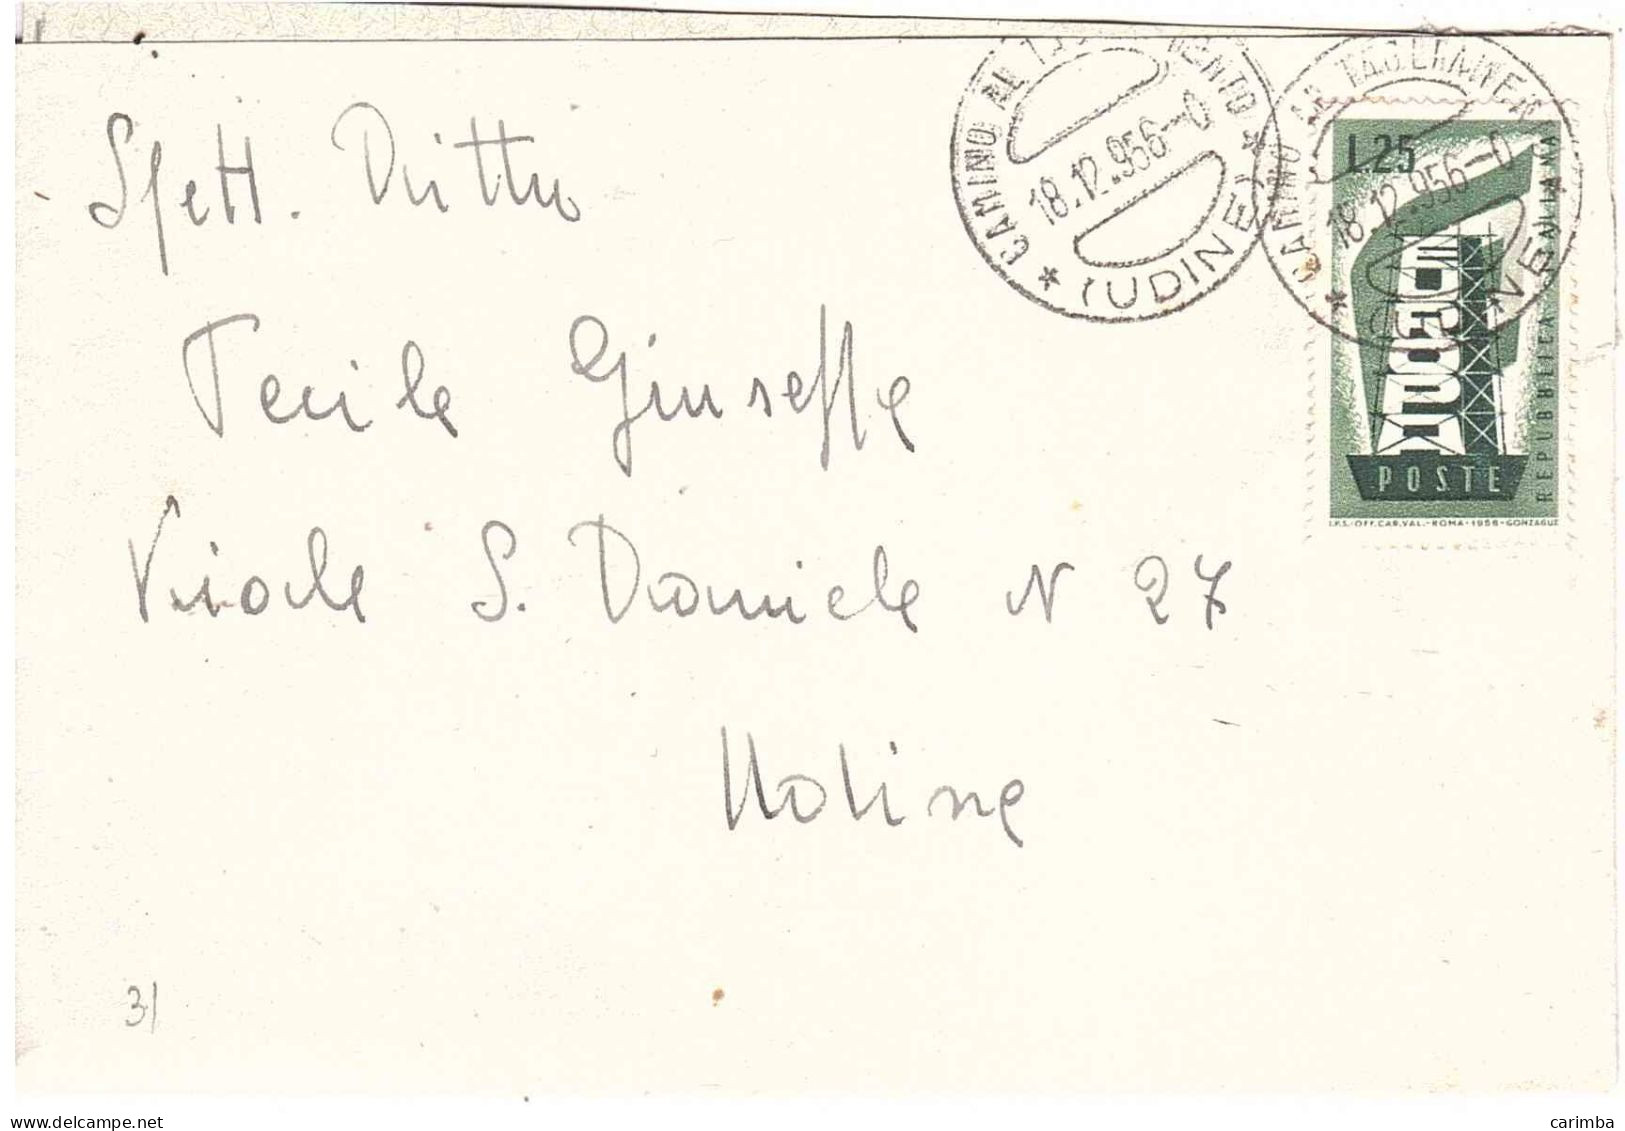 CAMINO AL TAGLIAMENTO
18.12.956-0
* (UDINE) *
CAMINO AL TAGLIAMENTO
18.12.956-0
* (UDINE) *
L.25
EUROPA
POSTE
REPUBBLICA ITALIANA
I.P.S.-OFF.CAR.VAL.-ROMA-1956-GONZAGUE
Spett. Ditta
Tecile Giuseppe
Viale S. Daniele N 27
Udine
31
carimba